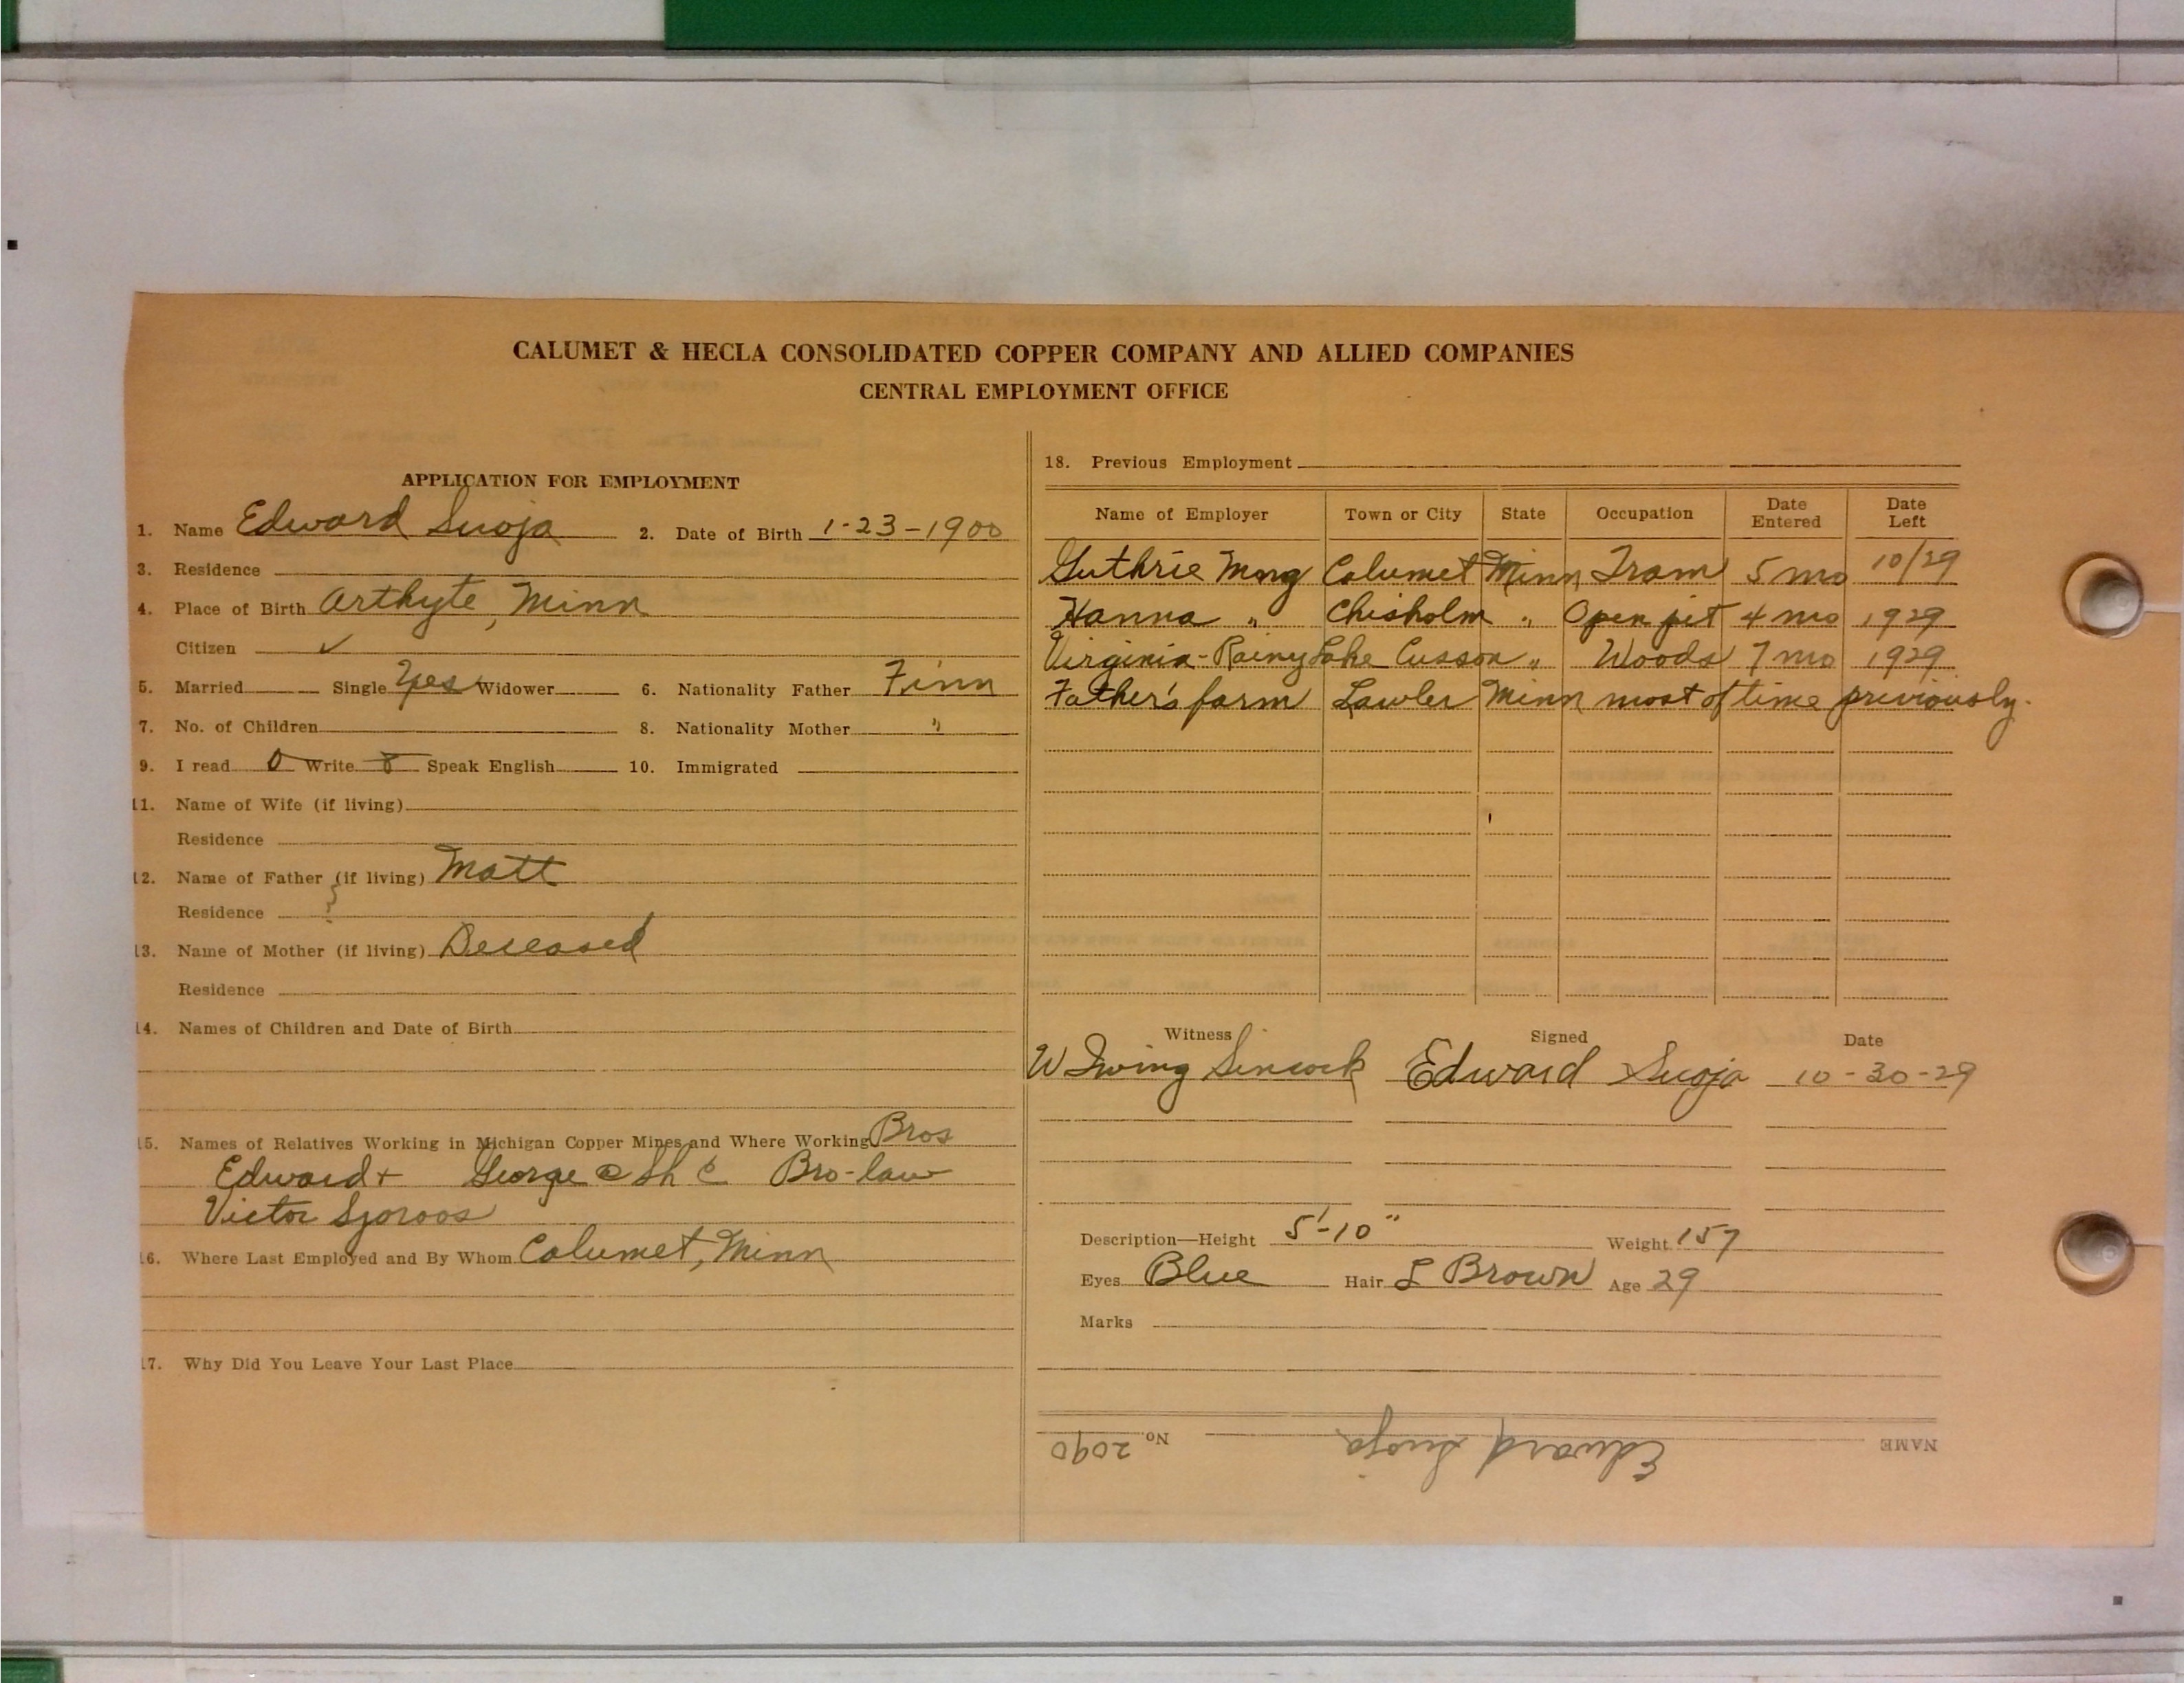 CALUMET & HECLA CONSOLIDATED COPPER COMPANY AND ALLIED COMPANIES
CENTRAL EMPLOYMENT OFFICE
APPLICATION FOR EMPLOYMENT
1. Name Edward Suoja 2. Date of Birth 1-23-1900
3. Residence
4. Place of Birth Arthyte, Minn
Citizen ✓
5. Married Single Yes Widower 6. Nationality Father Finn
7. No. of Children 8. Nationality Mother "
9. I read Write Speak English 10. Immigrated
11. Name of Wife (if living)
Residence
12. Name of Father (if living) Matt
Residence
13. Name of Mother (if living) Deceased
Residence
14. Names of Children and Date of Birth
15. Names of Relatives Working in Michigan Copper Mines and Where Working Bros
Edward + George Bro-law
Victor Sjoroos
16. Where Last Employed and By Whom Calumet, Minn
17. Why Did You Leave Your Last Place
18. Previous Employment
Name of Employer Town or City State Occupation Date Entered Date Left
Guthrie Mng Calumet Minn Tram 5 mo 10/29
Hanna " Chisholm " Open pit 4 mo 1929
Virginia-Rainy Lake Cusson " Woods 7 mo 1929
Father's farm Lawler Minn most of time previously.
Witness Signed Date
W Irving Sincock Edward Suoja 10-30-29
Description—Height 5'-10" Weight 157
Eyes Blue Hair L Brown Age 29
Marks
NAME Edward Suoja No. 2090